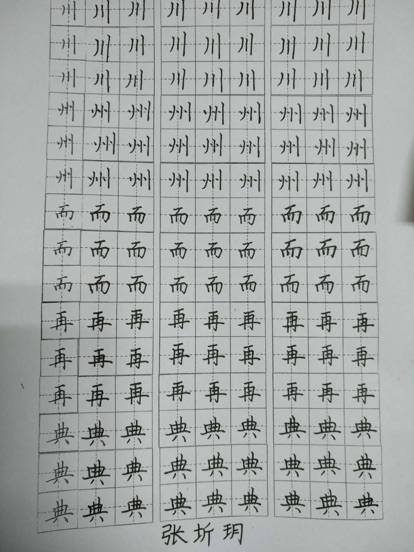 川川川川川川川川川
川川川川川川川川川
川川川川川川川川川
州州州州州州州州州
州州州州州州州州州
州州州州州州州州州
而而而而而而而而而
而而而而而而而而而
而而而而而而而而而
再再再再再再再再再
再再再再再再再再再
再再再再再再再再再
典典典典典典典典典
典典典典典典典典典
典典典典典典典典典
张圻玥